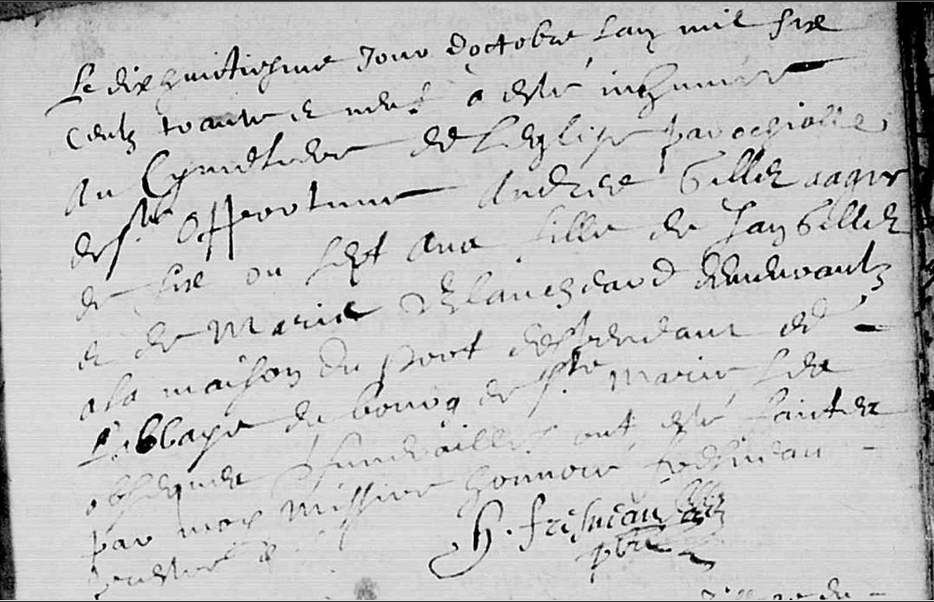 Le dix huitiesme Jour doctobre Lan mil six
Centz trante et neuf a esté inhumée
Au Cymetiere de Leglise parochialle
de ste Opportune Andrée Gillet aagee
de six ou sept Ans fille de Jan Gillet
et de Marie Blancheard demeurantz
a la maison du port despendant de
Labbaye du bourg de ste Marie Les
obseques funerailles ont esté faittes
par moy Missire honnoré fresneau
H. fresneau
pbre